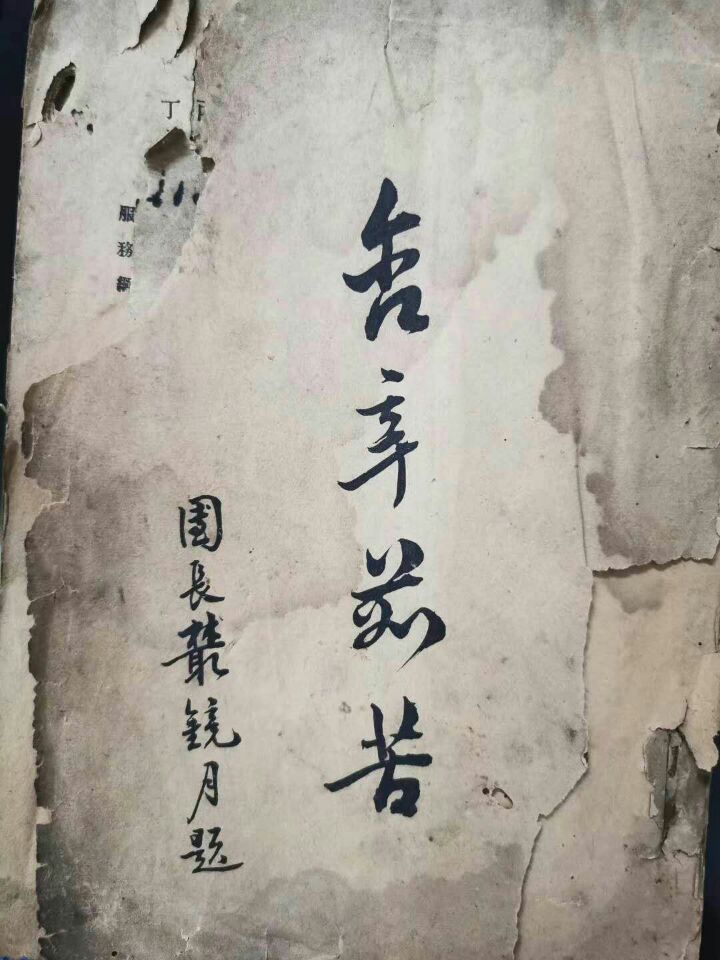 含辛茹苦
團長叢鏡月題
丁
服務